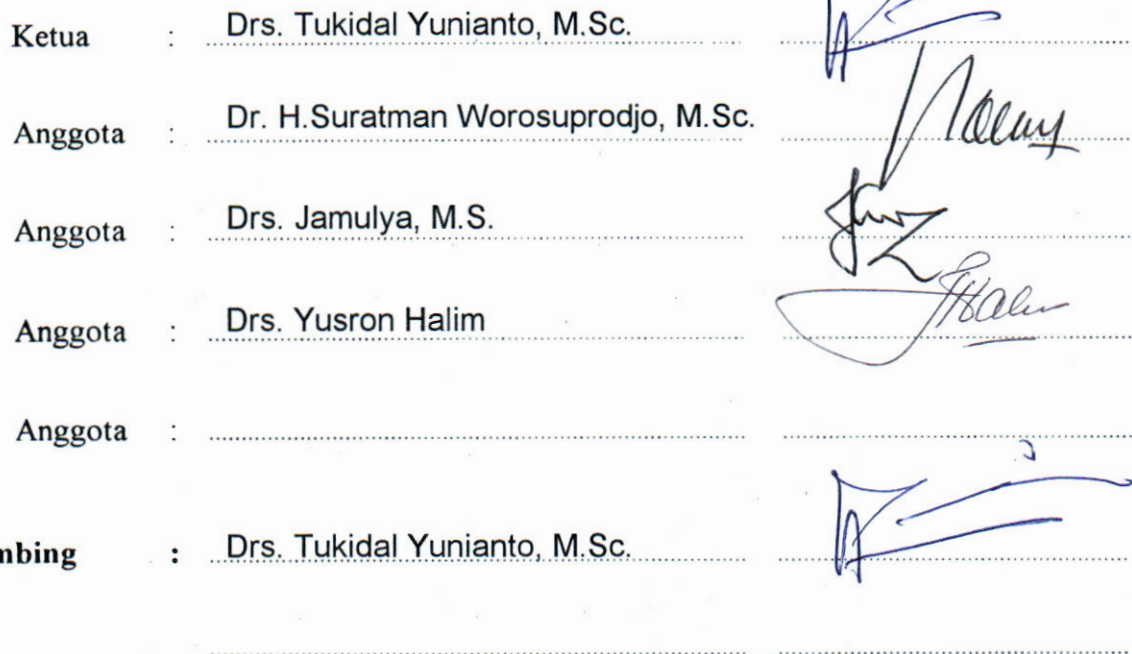 Ketua : Drs. Tukidal Yunianto, M.Sc.
Anggota : Dr. H.Suratman Worosuprodjo, M.Sc.
Anggota : Drs. Jamulya, M.S.
Anggota : Drs. Yusron Halim
Anggota :
mbing : Drs. Tukidal Yunianto, M.Sc.